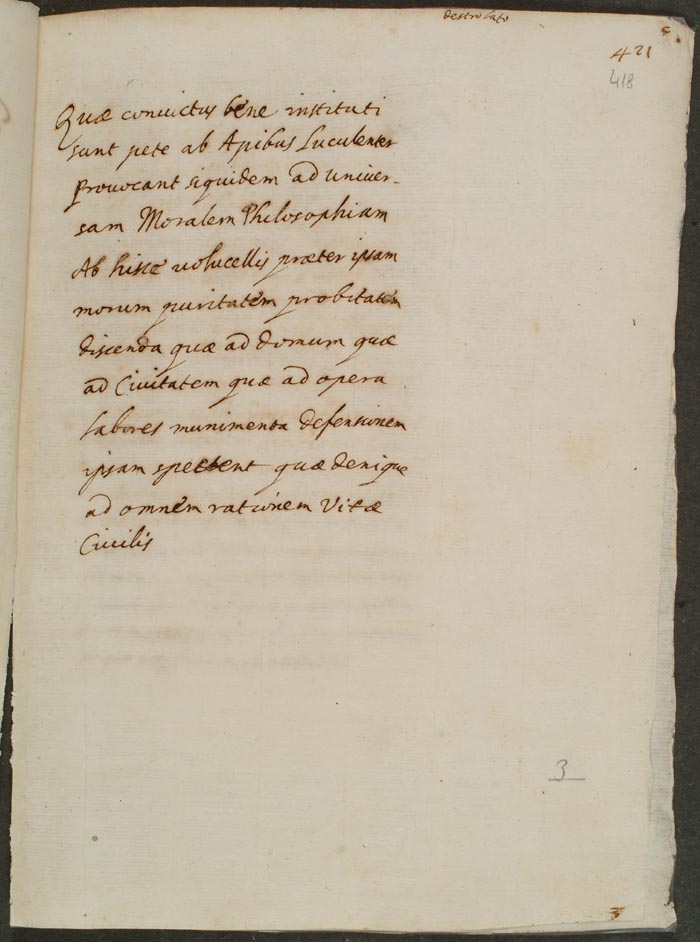 destro lato
421
418
Quæ convictus bene instituti
sunt pete ab Apibus Luculenter
provocant siquidem ad univer-
sam Moralem Philosophiam
Ab hisce volucellis præter ipsam
morum puritatem probitatem
discenda quæ ad domum quæ
ad Civitatem quæ ad opera
labores munimenta defensionem
ipsam spectent quæ denique
ad omnem rationem Vitæ
Civilis
3